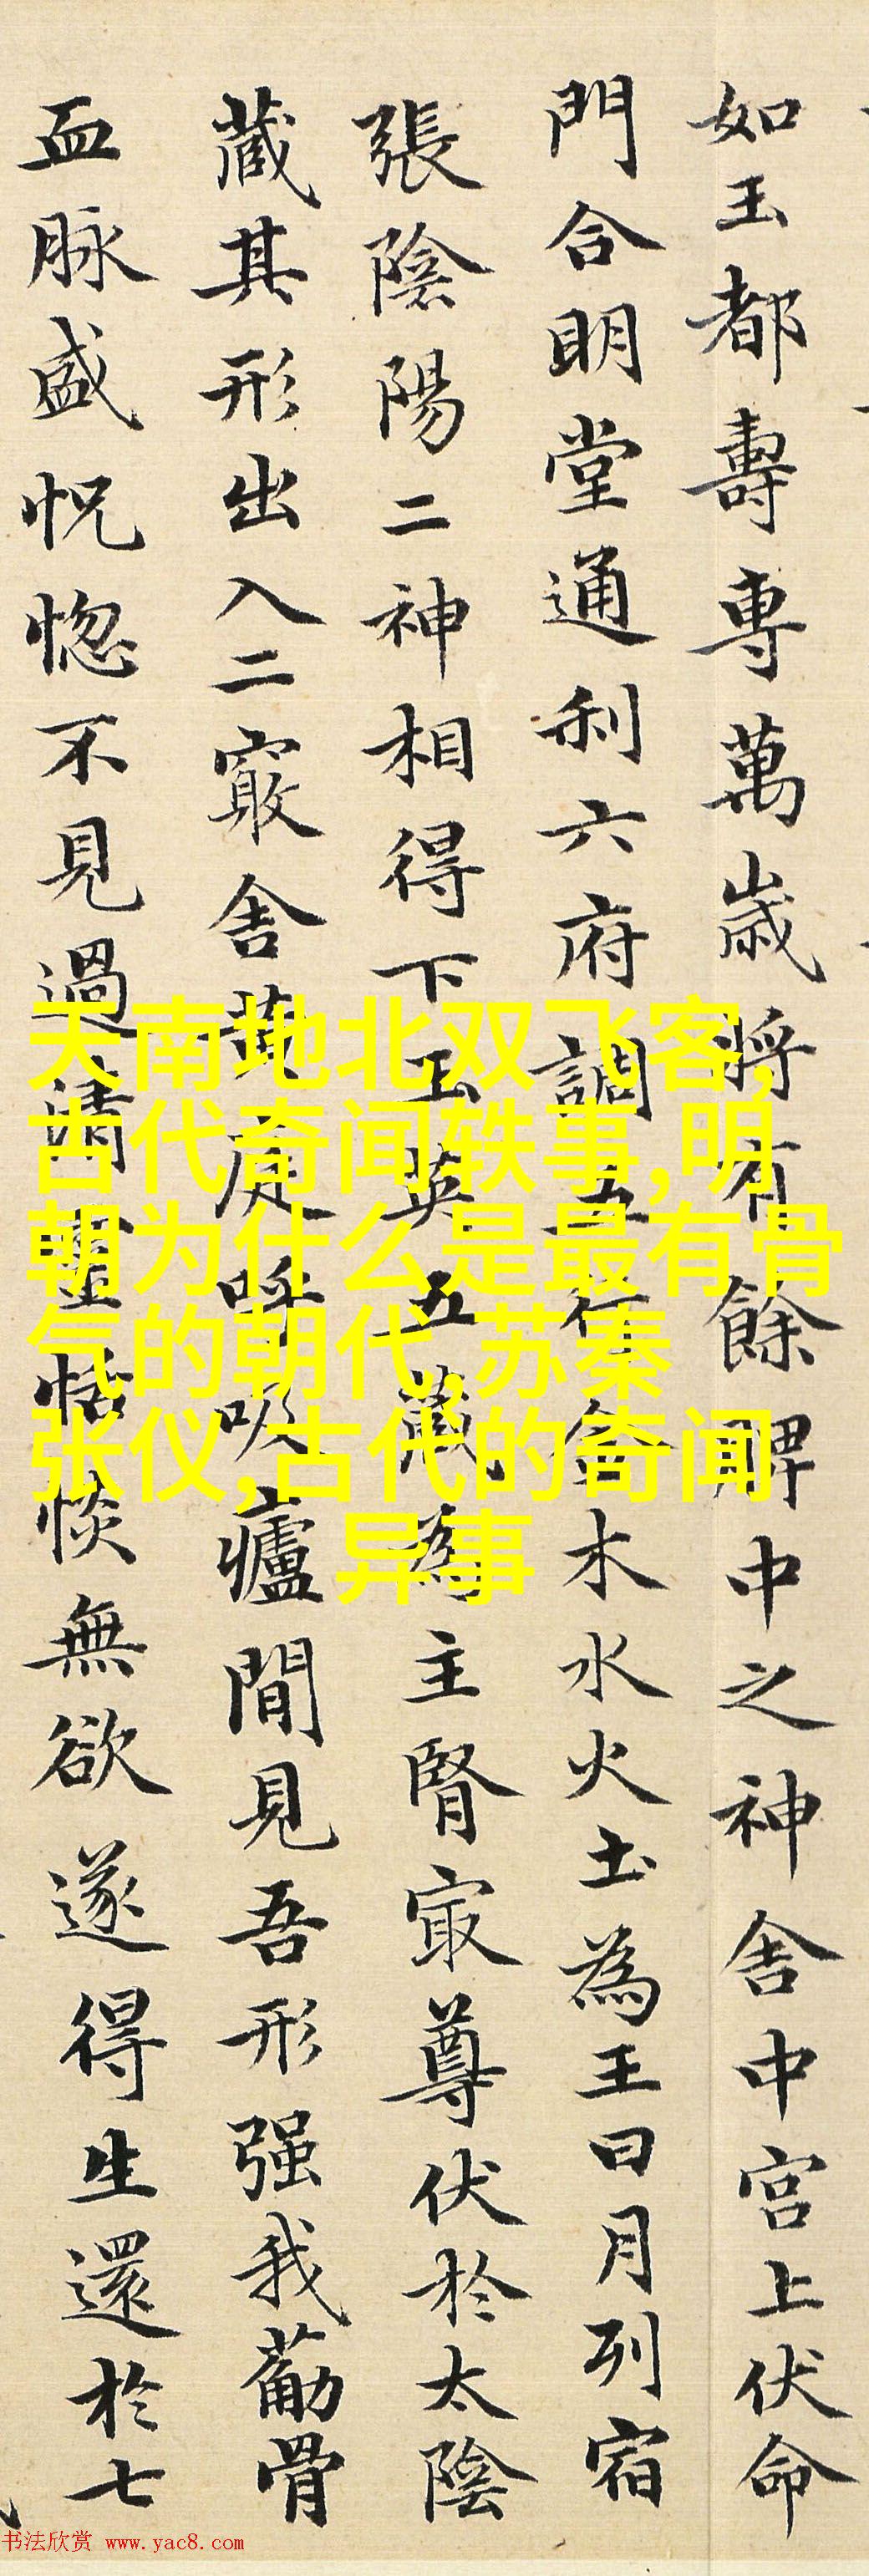 如玉都壽専萬歳將有餘脾中之神舍中宮上伏命
門合明堂通利六府調五行金木水火土為王日月列宿
張陰陽二神相得下玉英五藏為主腎㝡尊伏於太陰
藏其形出入二竅舍黄庭呼吸廬間見吾形强我葡骨
血脉盛怳惚不見過清靈恬惔無欲遂得生還於七
天南地北双飞客,
古代奇闻轶事,明
朝为什么是最有骨
气的朝代,苏秦
张仪,古代的奇闻
异事
书法欣赏 www.yac8.com